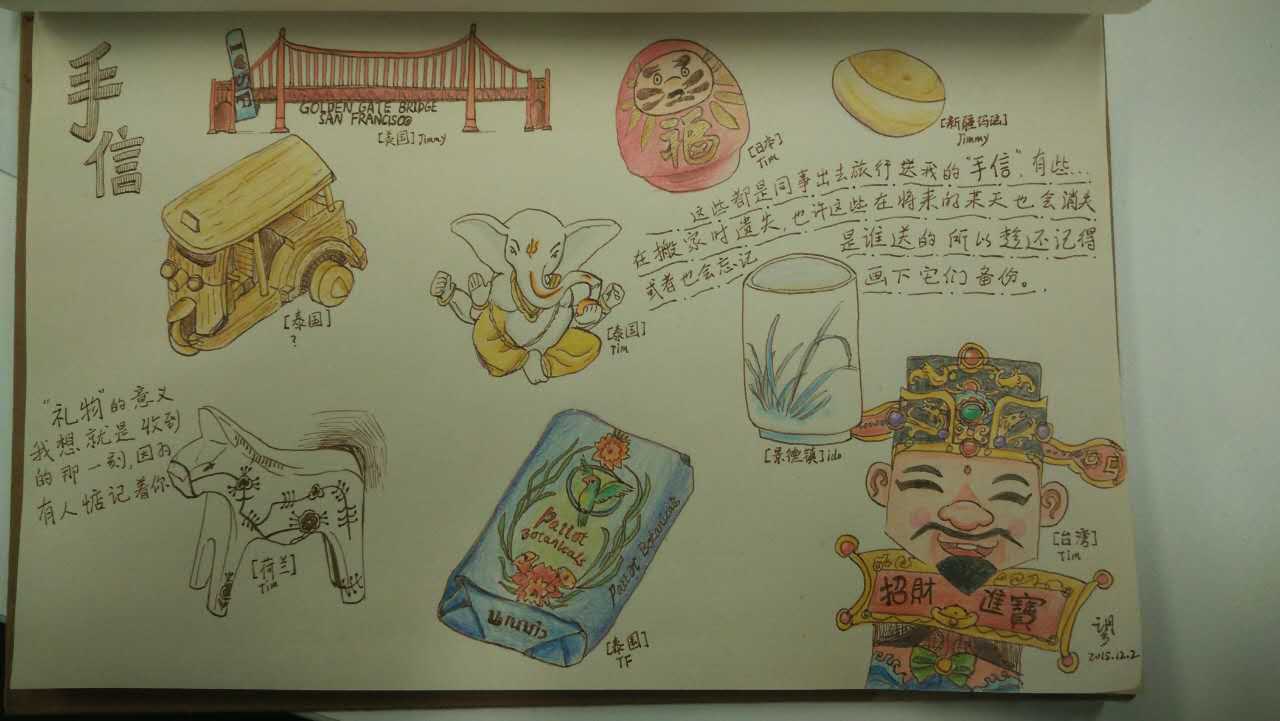 手信
I ♥ SF
GOLDEN GATE BRIDGE
SAN FRANCISCO
[美国] Jimmy
福
[日本]
Tim
[新疆玛瑙]
Jimmy
这些都是同事出去旅行送我的“手信”，有些...
在搬家时遗失，也许这些在将来的某天也会消失
或者也会忘记是谁送的 所以趁还记得
画下它们备份。
[泰国]
?
[泰国]
Tim
“礼物”的意义
我想就是收到
的那一刻，因为
有人惦记着你
[荷兰]
Tim
Parrot
Botanicals
Parrot Botanicals
[泰国]
TF
[景德镇] ido
[台湾]
Tim
招財 進寶
2015.12.2